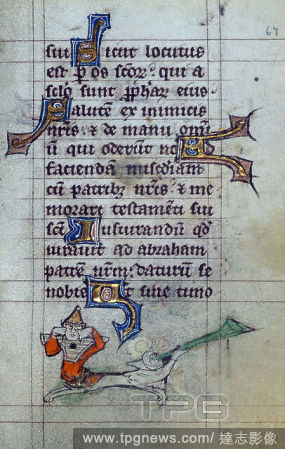 67
sui Sicut locutus
est p os scor̄. qui a
sclo sunt ꝓphar̄ eius.
Salutem ex inimicis
nr̄is. & de manu om̄i
ū qui oderūt nos Ad
faciendā misc̄diam
cū patribꝫ nr̄is. & me
morari testamēti sui
sc̄i Iusiurandū qd̄
iurauit ad abraham
patrē nr̄m. daturū se
nobis Ut sine timo
TPG
www.tpgnews.com/ 達志影像